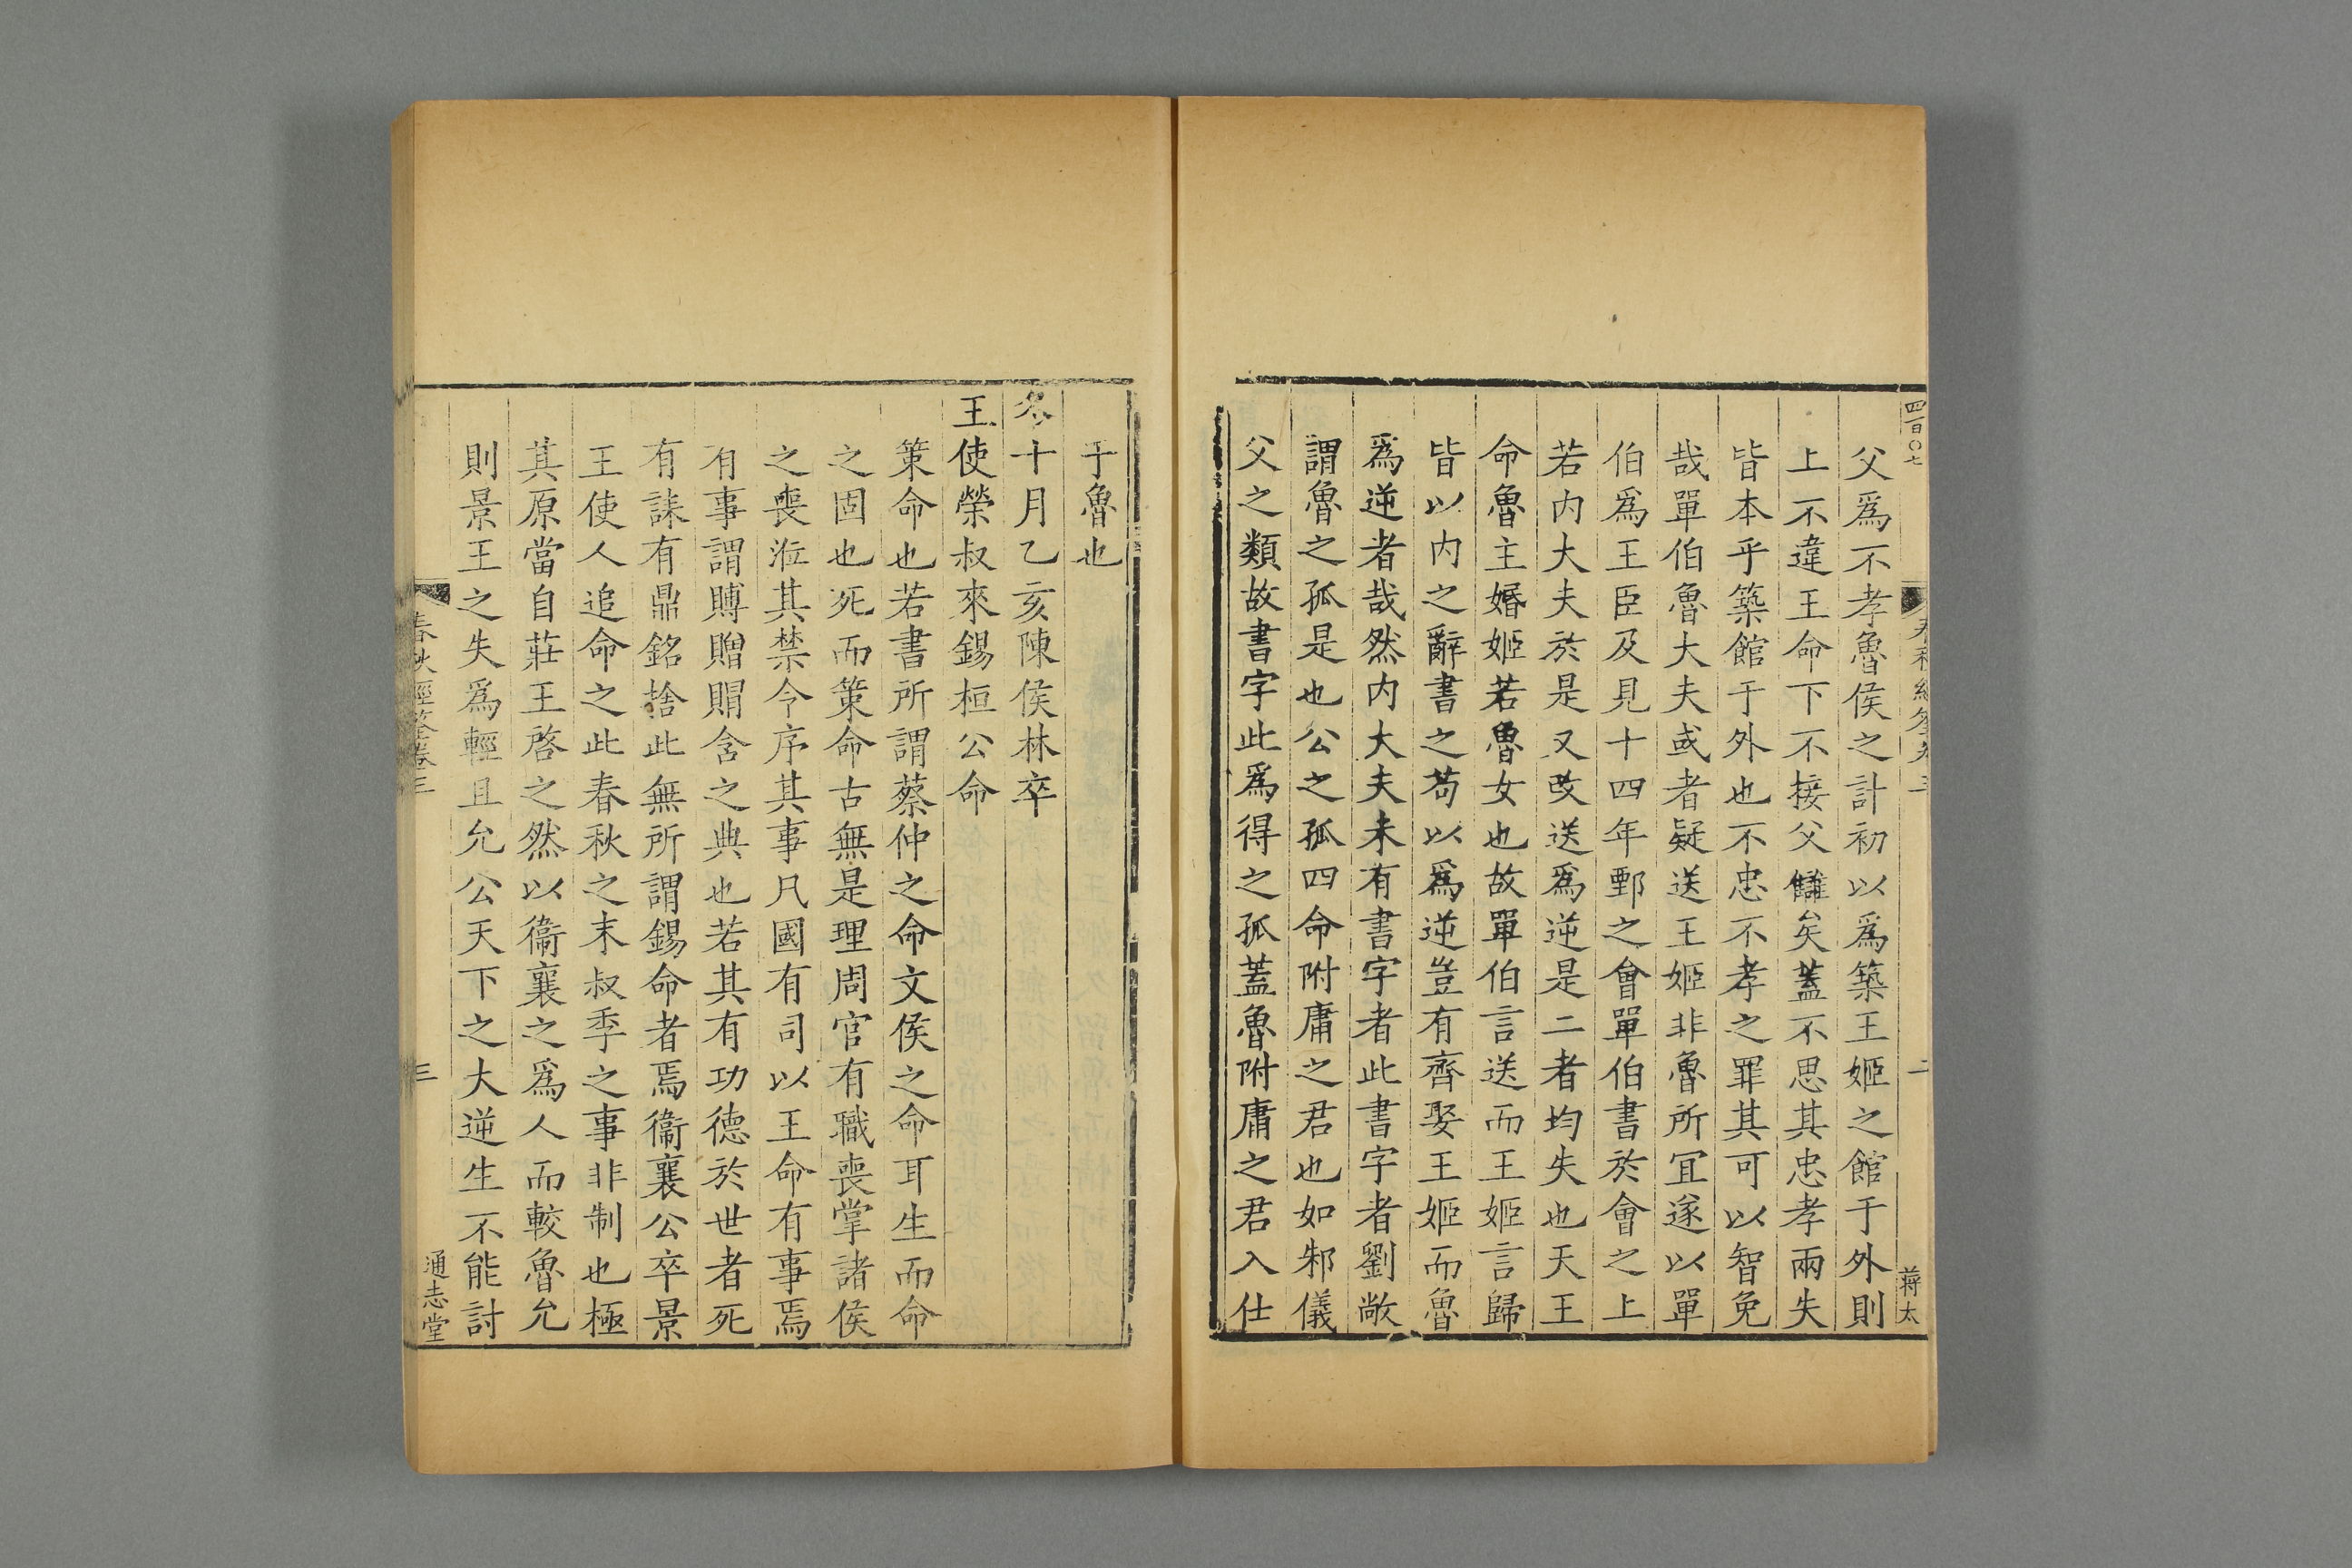 四百〇七
春秋經筌卷三
二
蔣太
父爲不孝魯侯之計初以爲築王姬之館于外則
上不違王命下不接父讎矣蓋不思其忠孝兩失
皆本乎築館于外也不忠不孝之罪其可以智免
哉單伯魯大夫或者疑送王姬非魯所冝遂以單
伯爲王臣及見十四年鄄之會單伯書於會之上
若内大夫於是又改送爲逆是二者均失也天王
命魯主婚姬若魯女也故單伯言送而王姬言歸
皆以内之辭書之苟以爲逆豈有齊娶王姬而魯
爲逆者哉然内大夫未有書字者此書字者劉敞
謂魯之孤是也公之孤四命附庸之君也如邾儀
父之類故書字此爲得之孤蓋魯附庸之君入仕
于魯也
冬十月乙亥陳侯林卒
王使榮叔來錫桓公命
策命也若書所謂蔡仲之命文侯之命耳生而命
之固也死而策命古無是理周官有職喪掌諸侯
之喪涖其禁令序其事凡國有司以王命有事焉
有事謂賻贈賵含之典也若其有功德於世者死
有誄有鼎銘捨此無所謂錫命者焉衞襄公卒景
王使人追命之此春秋之末叔季之事非制也極
其原當自莊王啓之然以衞襄之爲人而較魯允
則景王之失爲輕且允公天下之大逆生不能討
春秋經筌卷三
三
通志堂